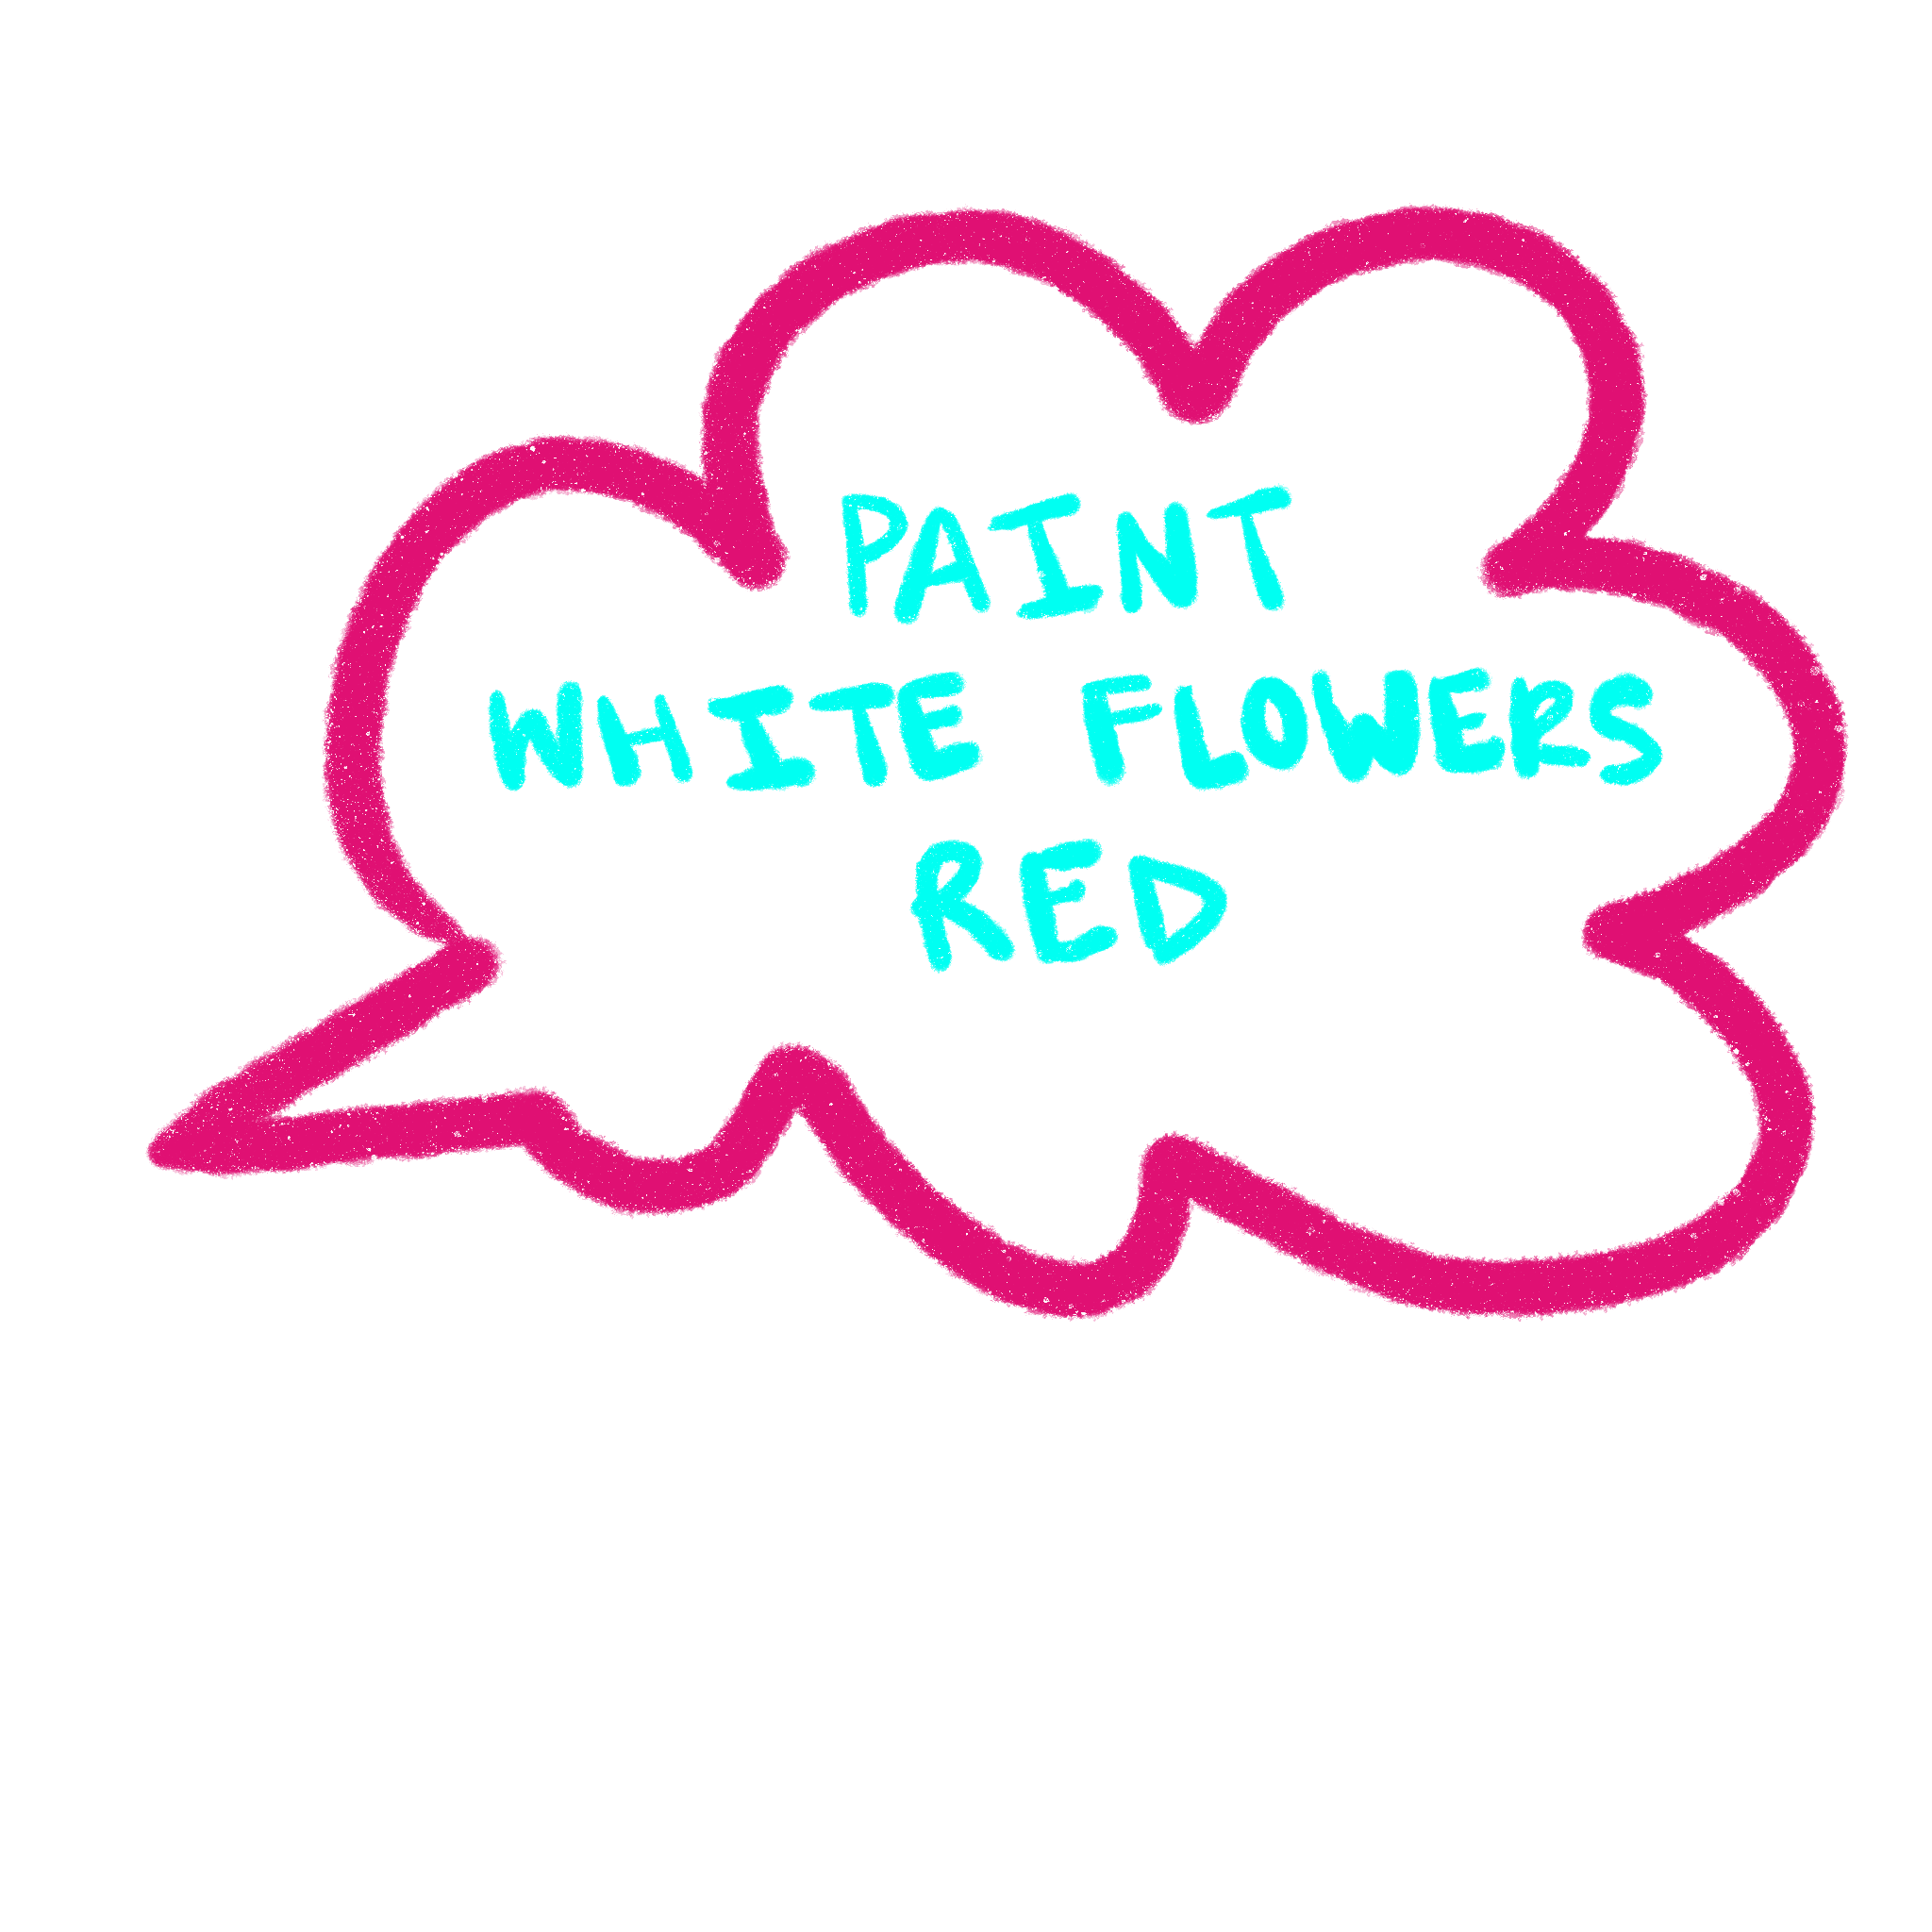 PAINT
WHITE FLOWERS
RED